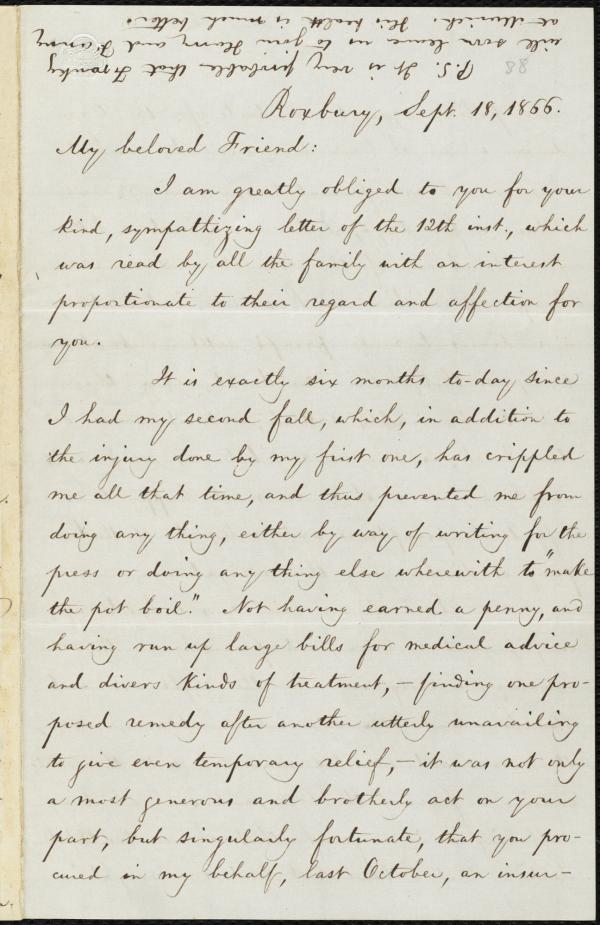 P.S. It is very probable that Franky
will soon leave us to join Harry and Fanny
at Munich. His health is much better.
88
Roxbury, Sept. 18, 1866.
My beloved Friend:
I am greatly obliged to you for your
kind, sympathizing letter of the 12th inst., which
was read by all the family with an interest
proportionate to their regard and affection for
you.
It is exactly six months to-day since
I had my second fall, which, in addition to
the injury done by my first one, has crippled
me all that time, and thus prevented me from
doing any thing, either by way of writing for the
press or doing any thing else wherewith to "make
the pot boil." Not having earned a penny, and
having run up large bills for medical advice
and divers kinds of treatment, — finding one pro-
posed remedy after another utterly unavailing
to give even temporary relief, — it was not only
a most generous and brotherly act on your
part, but singularly fortunate, that you pro-
cured in my behalf, last October, an insur-